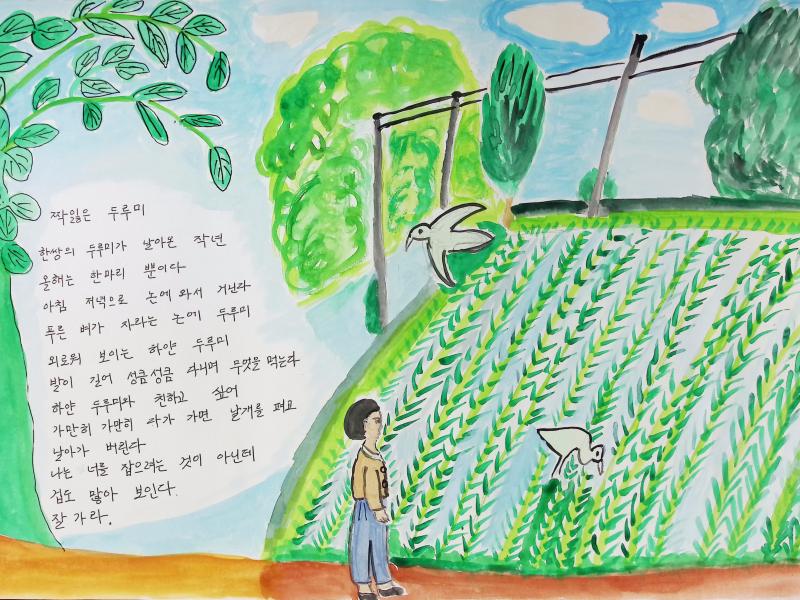 짝잃은 두루미
한쌍의 두루미가 날아온 작년
올해는 한마리 뿐이다
아침 저녁으로 논에 와서 거닌다
푸른 벼가 자라는 논에 두루미
외로워 보이는 하얀 두루미
발이 길어 성큼성큼 다니며 무엇을 먹는다
하얀 두루미와 친하고 싶어
가만히 가만히 다가 가면 날개를 펴고
날아가 버린다
나는 너를 잡으려는 것이 아닌데
겁도 많아 보인다.
잘 가라.